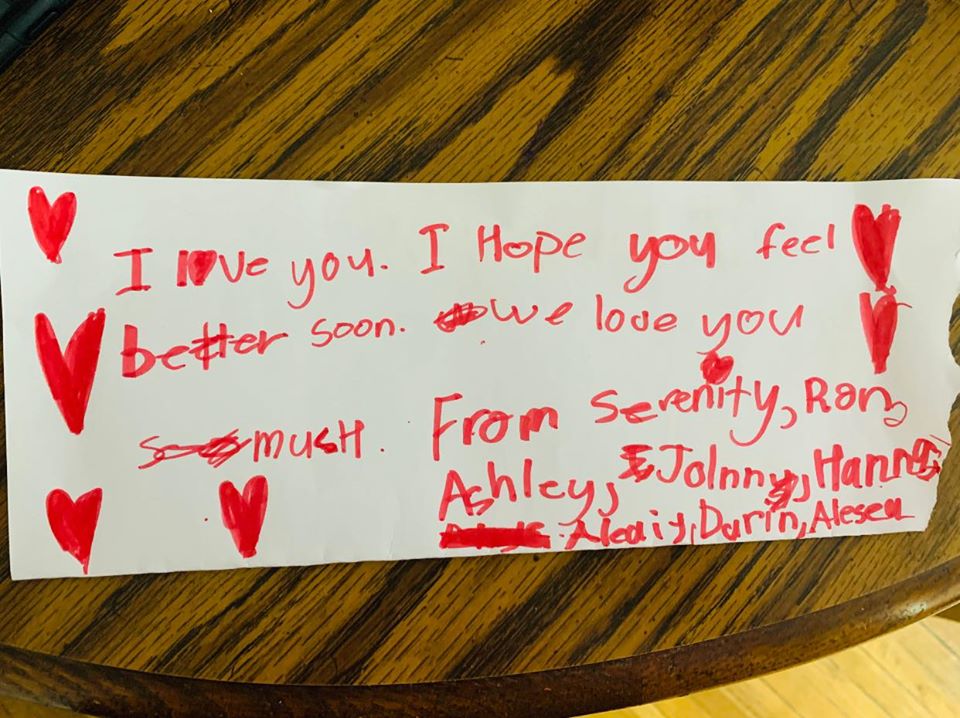 I love you. I Hope you feel
better soon. We love you
mush.
From Serenity, Ron,
Ashley, Johnny, Hanna,
Aleaiy, Durin, Alesea